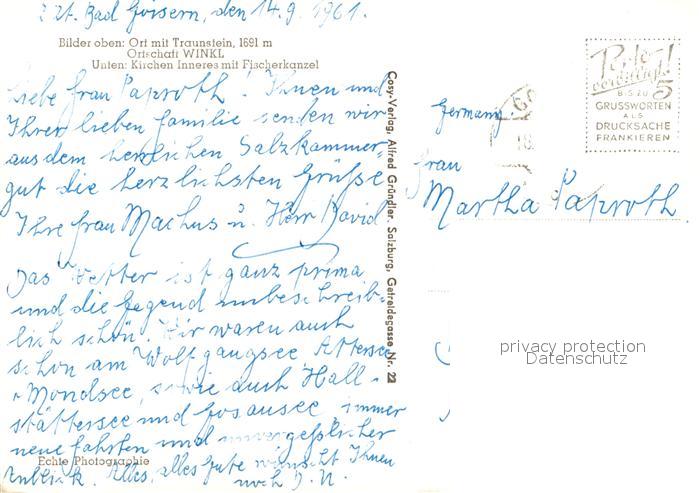 z.Zt. Bad Goisern, den 14.9.1961.
Bilder oben: Ort mit Traunstein, 1691 m
Ortschaft WINKL
Unten: Kirchen Inneres mit Fischerkanzel
Liebe Frau Paproth! Ihnen und
Ihrer lieben Familie senden wir
aus dem herrlichen Salzkammer
gut die herzlichsten Grüße
Ihre Frau Machus u. Herr David
Das Wetter ist ganz prima
und die Gegend unbeschreib-
lich schön. Wir waren auch
schon am Wolfgangsee Attersee
Mondsee, sowie auch Hall-
stättersee und Gosausee immer
neue Fahrten und unvergesslicher
Anblick. Alles, alles Gute wünscht Ihnen
noch
Echte Photographie
Cosy-Verlag, Alfred Gründler, Salzburg, Getreidegasse Nr. 22
Porto
verbilligt!
BIS ZU 5
GRUSSWORTEN
ALS
DRUCKSACHE
FRANKIEREN
Germany.
18
Frau
Martha Paproth.
privacy protection
Datenschutz